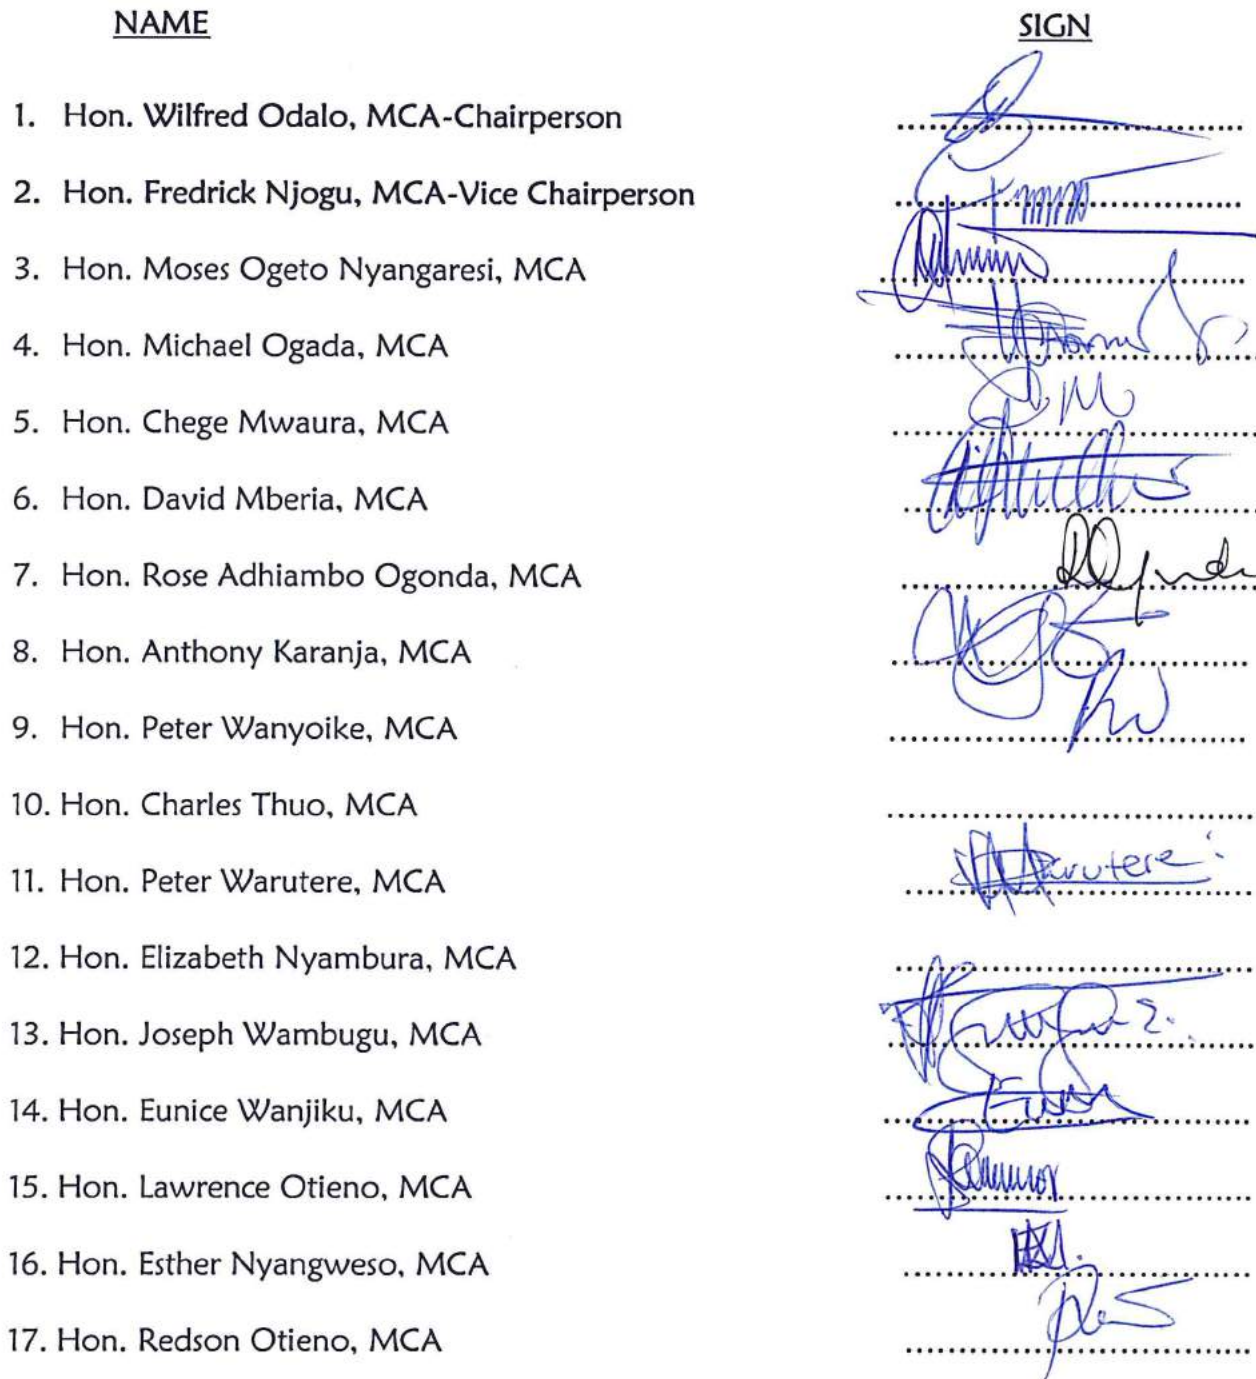 NAME SIGN
1. Hon. Wilfred Odalo, MCA-Chairperson
2. Hon. Fredrick Njogu, MCA-Vice Chairperson
3. Hon. Moses Ogeto Nyangaresi, MCA
4. Hon. Michael Ogada, MCA
5. Hon. Chege Mwaura, MCA
6. Hon. David Mberia, MCA
7. Hon. Rose Adhiambo Ogonda, MCA
8. Hon. Anthony Karanja, MCA
9. Hon. Peter Wanyoike, MCA
10. Hon. Charles Thuo, MCA
11. Hon. Peter Warutere, MCA
12. Hon. Elizabeth Nyambura, MCA
13. Hon. Joseph Wambugu, MCA
14. Hon. Eunice Wanjiku, MCA
15. Hon. Lawrence Otieno, MCA
16. Hon. Esther Nyangweso, MCA
17. Hon. Redson Otieno, MCA